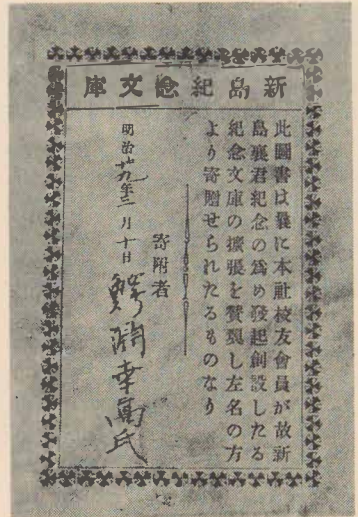 新島紀念文庫
此圖書は曩に本社校友會員が故新
島襄君紀念の爲め發起創設したる
紀念文庫の擴張を賛襄し左名の方
より寄贈せられたるものなり
寄附者
鰐淵幸氏
明治廿九年三月十日